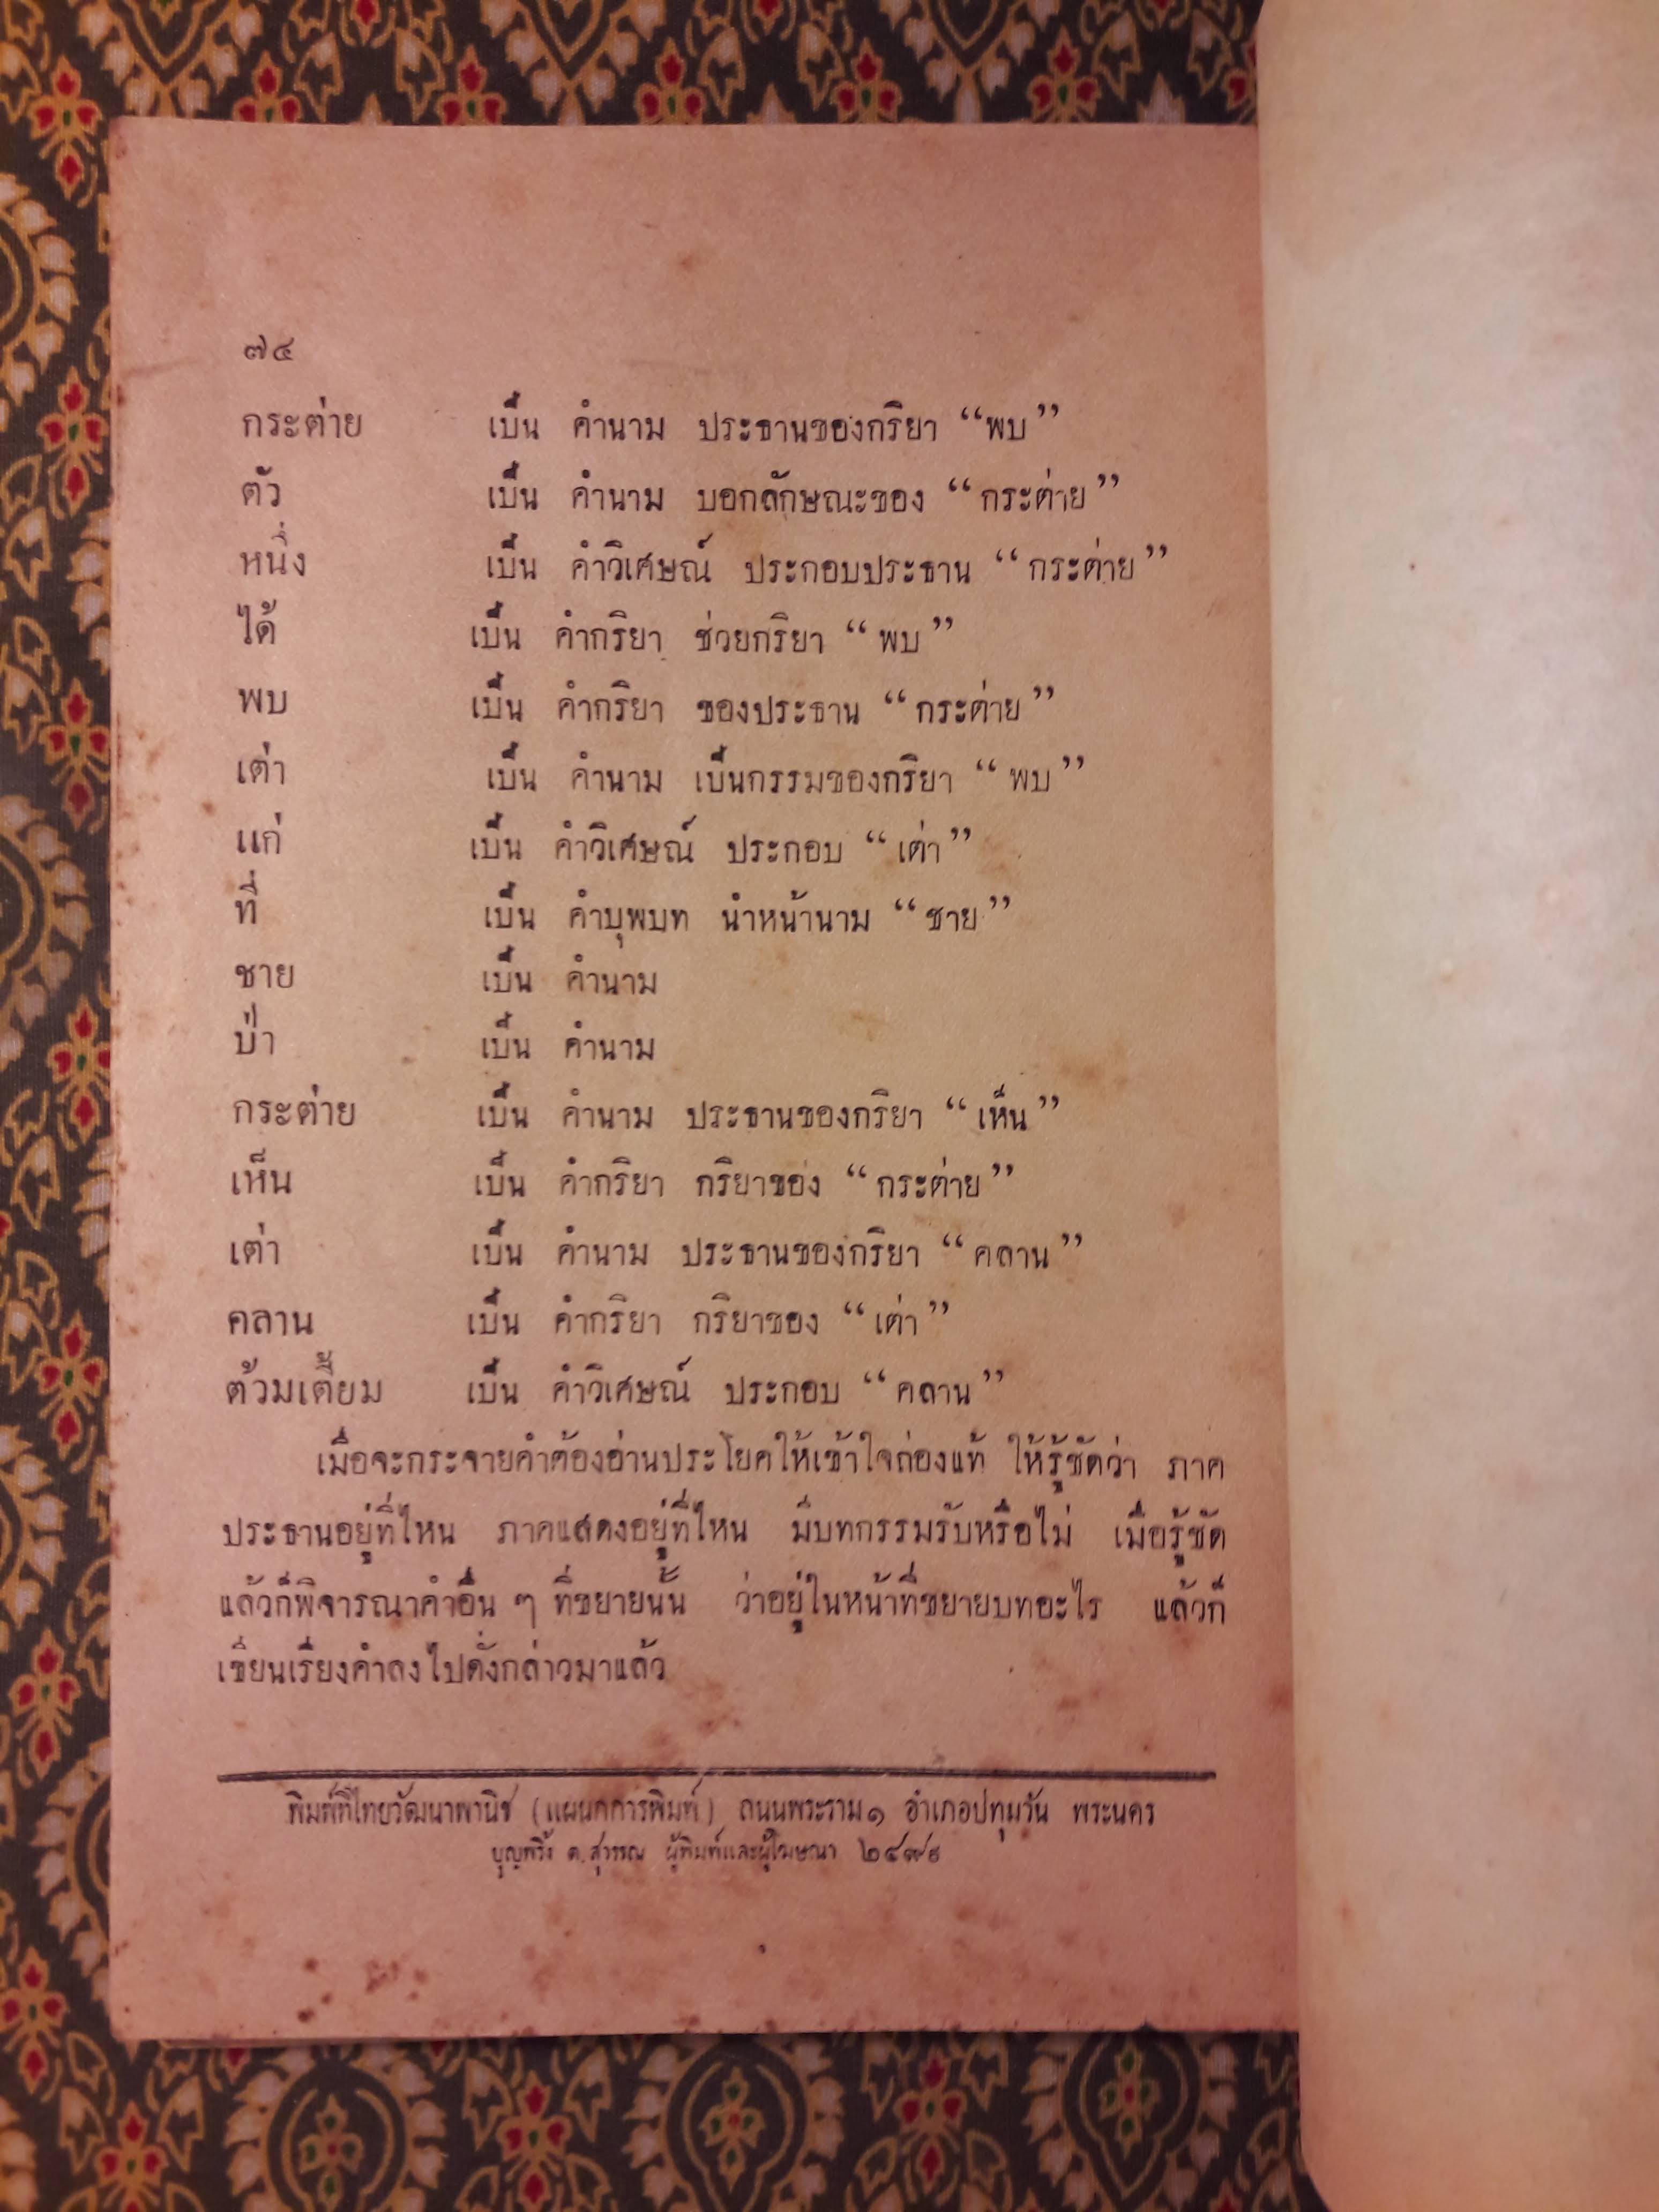 ๗๔
กระต่าย เป็น คำนาม ประธานของกริยา “พบ”
ตัว เป็น คำนาม บอกลักษณะของ “กระต่าย”
หนึ่ง เป็น คำวิเศษณ์ ประกอบประธาน “กระต่าย”
ได้ เป็น คำกริยา ช่วยกริยา “พบ”
พบ เป็น คำกริยา ของประธาน “กระต่าย”
เต่า เป็น คำนาม เป็นกรรมของกริยา “พบ”
แก่ เป็น คำวิเศษณ์ ประกอบ “เต่า”
ที่ เป็น คำบุพบท นำหน้านาม “ชาย”
ชาย เป็น คำนาม
ป่า เป็น คำนาม
กระต่าย เป็น คำนาม ประธานของกริยา “เห็น”
เห็น เป็น คำกริยา กริยาของ “กระต่าย”
เต่า เป็น คำนาม ประธานของกริยา “คลาน”
คลาน เป็น คำกริยา กริยาของ “เต่า”
ต้วมเตี้ยม เป็น คำวิเศษณ์ ประกอบ “คลาน”
เมื่อจะกระจายคำต้องอ่านประโยคให้เข้าใจถ่องแท้ ให้รู้ชัดว่า ภาค
ประธานอยู่ที่ไหน ภาคแสดงอยู่ที่ไหน มีบทกรรมรับหรือไม่ เมื่อรู้ชัด
แล้วก็พิจารณาคำอื่น ๆ ที่ขยายนั้น ว่าอยู่ในหน้าที่ขยายบทอะไร แล้วก็
เขียนเรียงคำลงไปดั่งกล่าวมาแล้ว
พิมพ์ที่ไทยวัฒนาพานิช (แผนกการพิมพ์) ถนนพระราม๑ อำเภอปทุมวัน พระนคร
บุญพริ้ง ต.สุวรรณ ผู้พิมพ์และผู้โฆษณา ๒๔๙๘